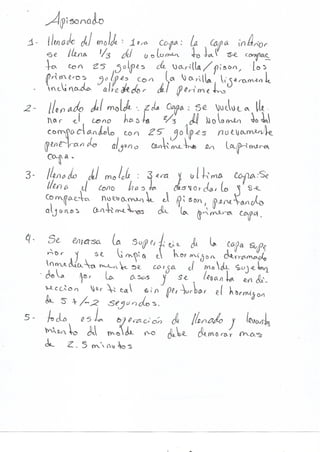 Apisonado
1- llenado del molde: 1era Capa: La capa inferior
se llena 1/3 del volumen total se compac
ta con 25 golpes de varilla/pison, los
primeros golpes con la varilla, ligeramente
inclinada alrededor del perimetro
2- llenado del molde: 2da Capa: Se vuelve a lle
nar el cono hasta 2/3 del volumen total
compactandolo con 25 golpes nuevamente
penetrando alguno centimetro en la primera
capa.
3- llenado del molde: 3era y ultima capa: Se
llena el cono hasta desvordarlo y se
compacta nuevamente el pison, penetrando
algonos centimetros de la primera capa.
4- Se enrasa la superficie de la capa supe
rior y se limpia el hormigon derramado
inmediatamente se coge el molde sujetan
dola por la asas y se levanta en di-
reccion vertical sin perturbar el hormigon
de 5 +/- 2 segundos.
5- toda esta operación de llenado y levanta
miento del molde no debe demorar mas
de 2.5 minutos